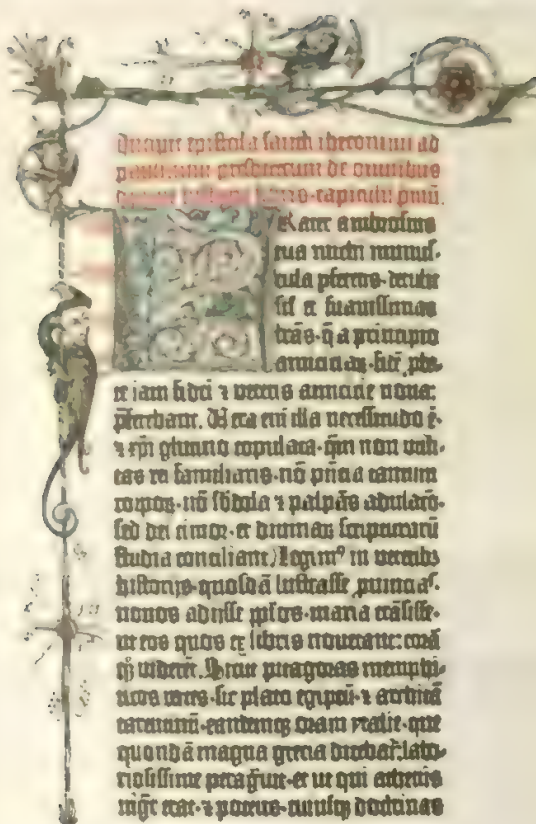 epistola sancti iheronimi ad
paulinum presbiterum de omnibus
libris·capitulū pmū.
Rater ambrosius
tua michi munus-
cula pferens·detulit
sil̄ et suauissimas
l̄ras·q̄ a principio
amiciciaꝝ·fidē pba-
te iam fidei ⁊ veteris amicicie noua:
pferebant. Vera em̄ illa necessitudo ē·
⁊ xp̄i glutino copulata·qm̄ non vtili-
tas rei familiaris·nō p̄ncia tantum
corpoꝝ·nō sbdola ⁊ palpās adulacō·
sed dei timor·et diuinaꝝ scripturarū
studia conciliant. Legimꝰ in veteribꝰ
historijs·quosdā lustrasse ꝓuincias·
nouos adiisse pplos·maria trāsisse·
ut eos quos ex libris nouerant: corā
qꝫ viderēt. Sicut pitagoras memphi-
ticos vates·sic plato egiptū·⁊ architā
tarentinū·eandemqꝫ oram ytalie·que
quondā magna grecia dicebat̄: labo-
riosissime peragrauit·et ut qui athenis
mgr̄ erat·⁊ potens·cuiusqꝫ doctrinas